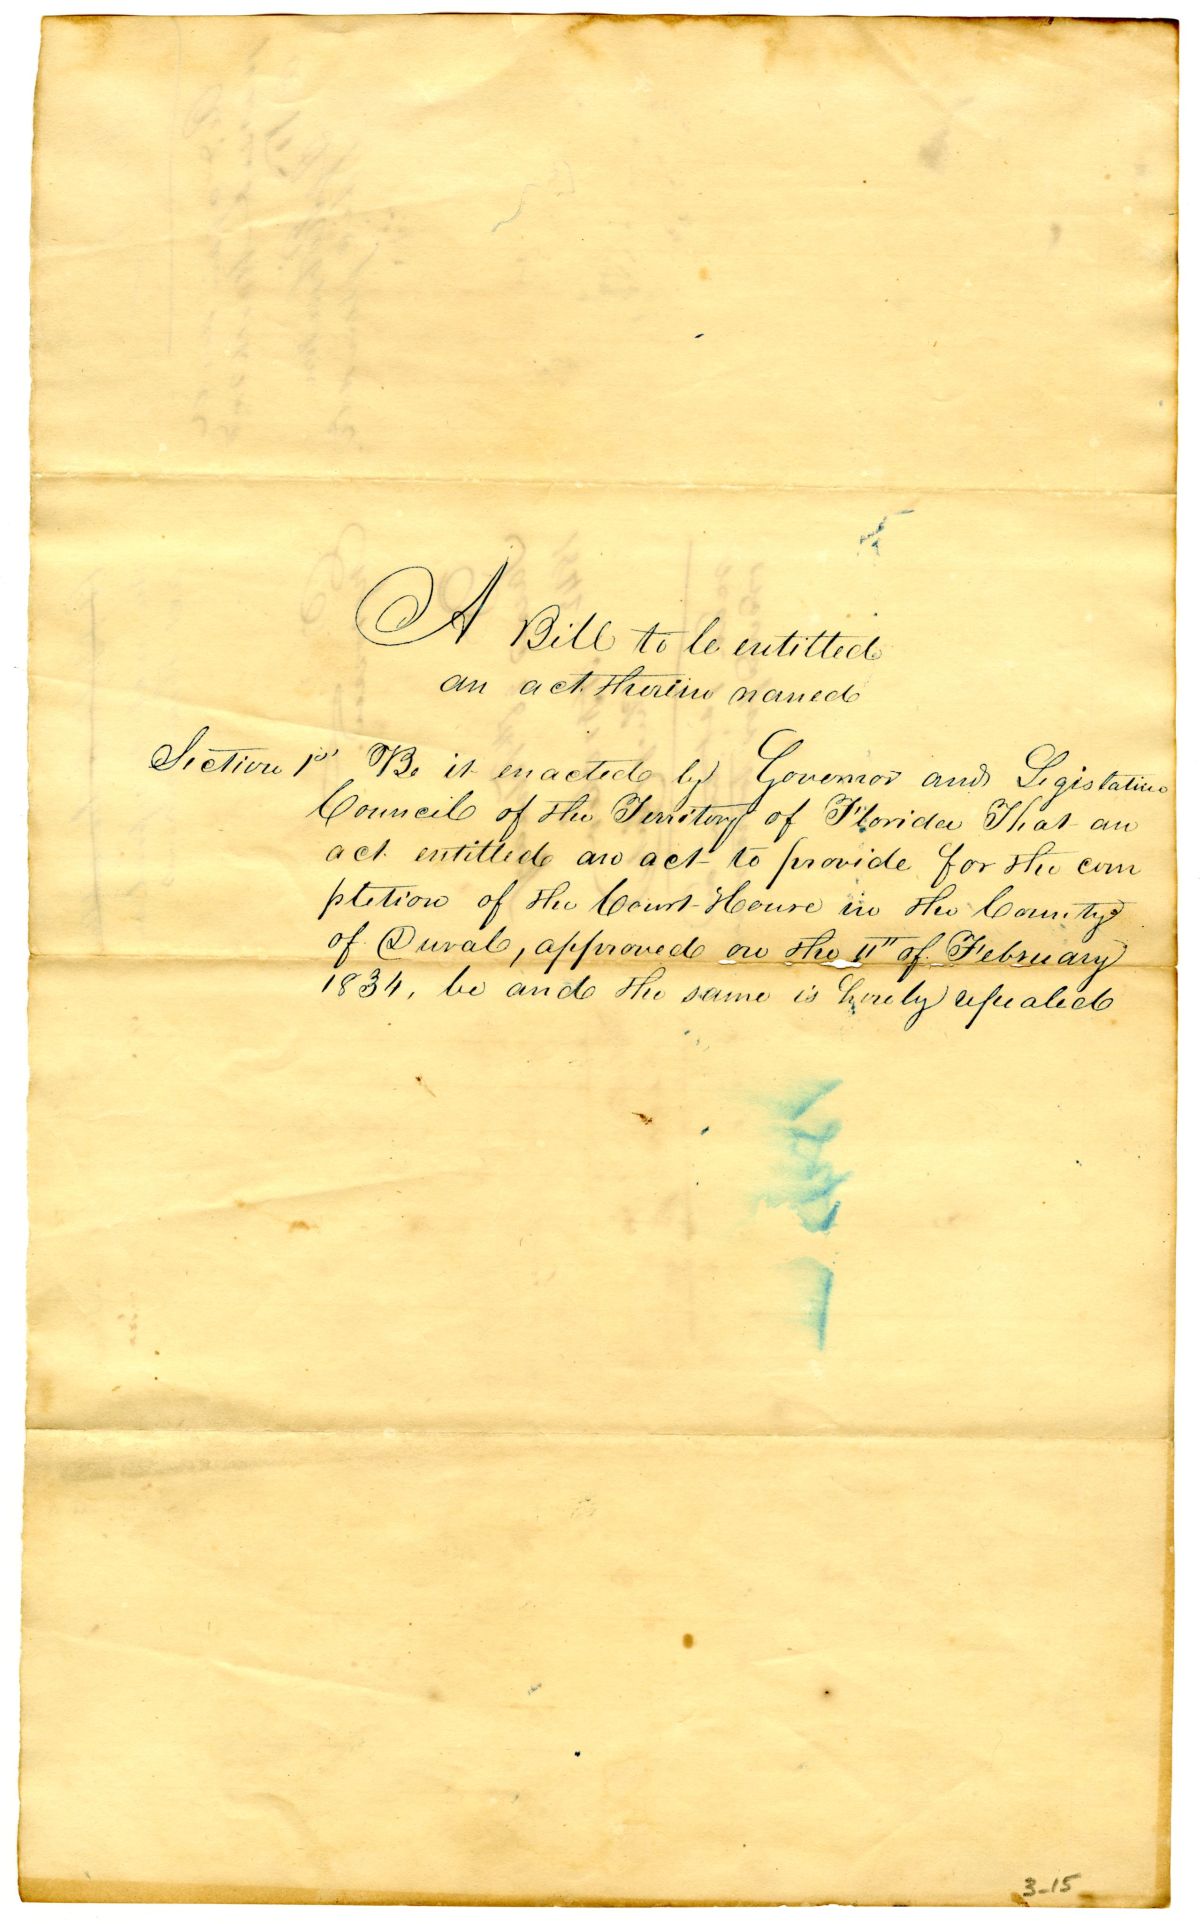 A Bill to be entitled
an act therein named
Section 1st Be it enacted by Governor and Legislative
Council of the Territory of Florida That an
act entitled an act to provide for the com
pletion of the Court House in the County
of Duval, approved on the 11th of February
1834, be and the same is hereby repealed
3-15